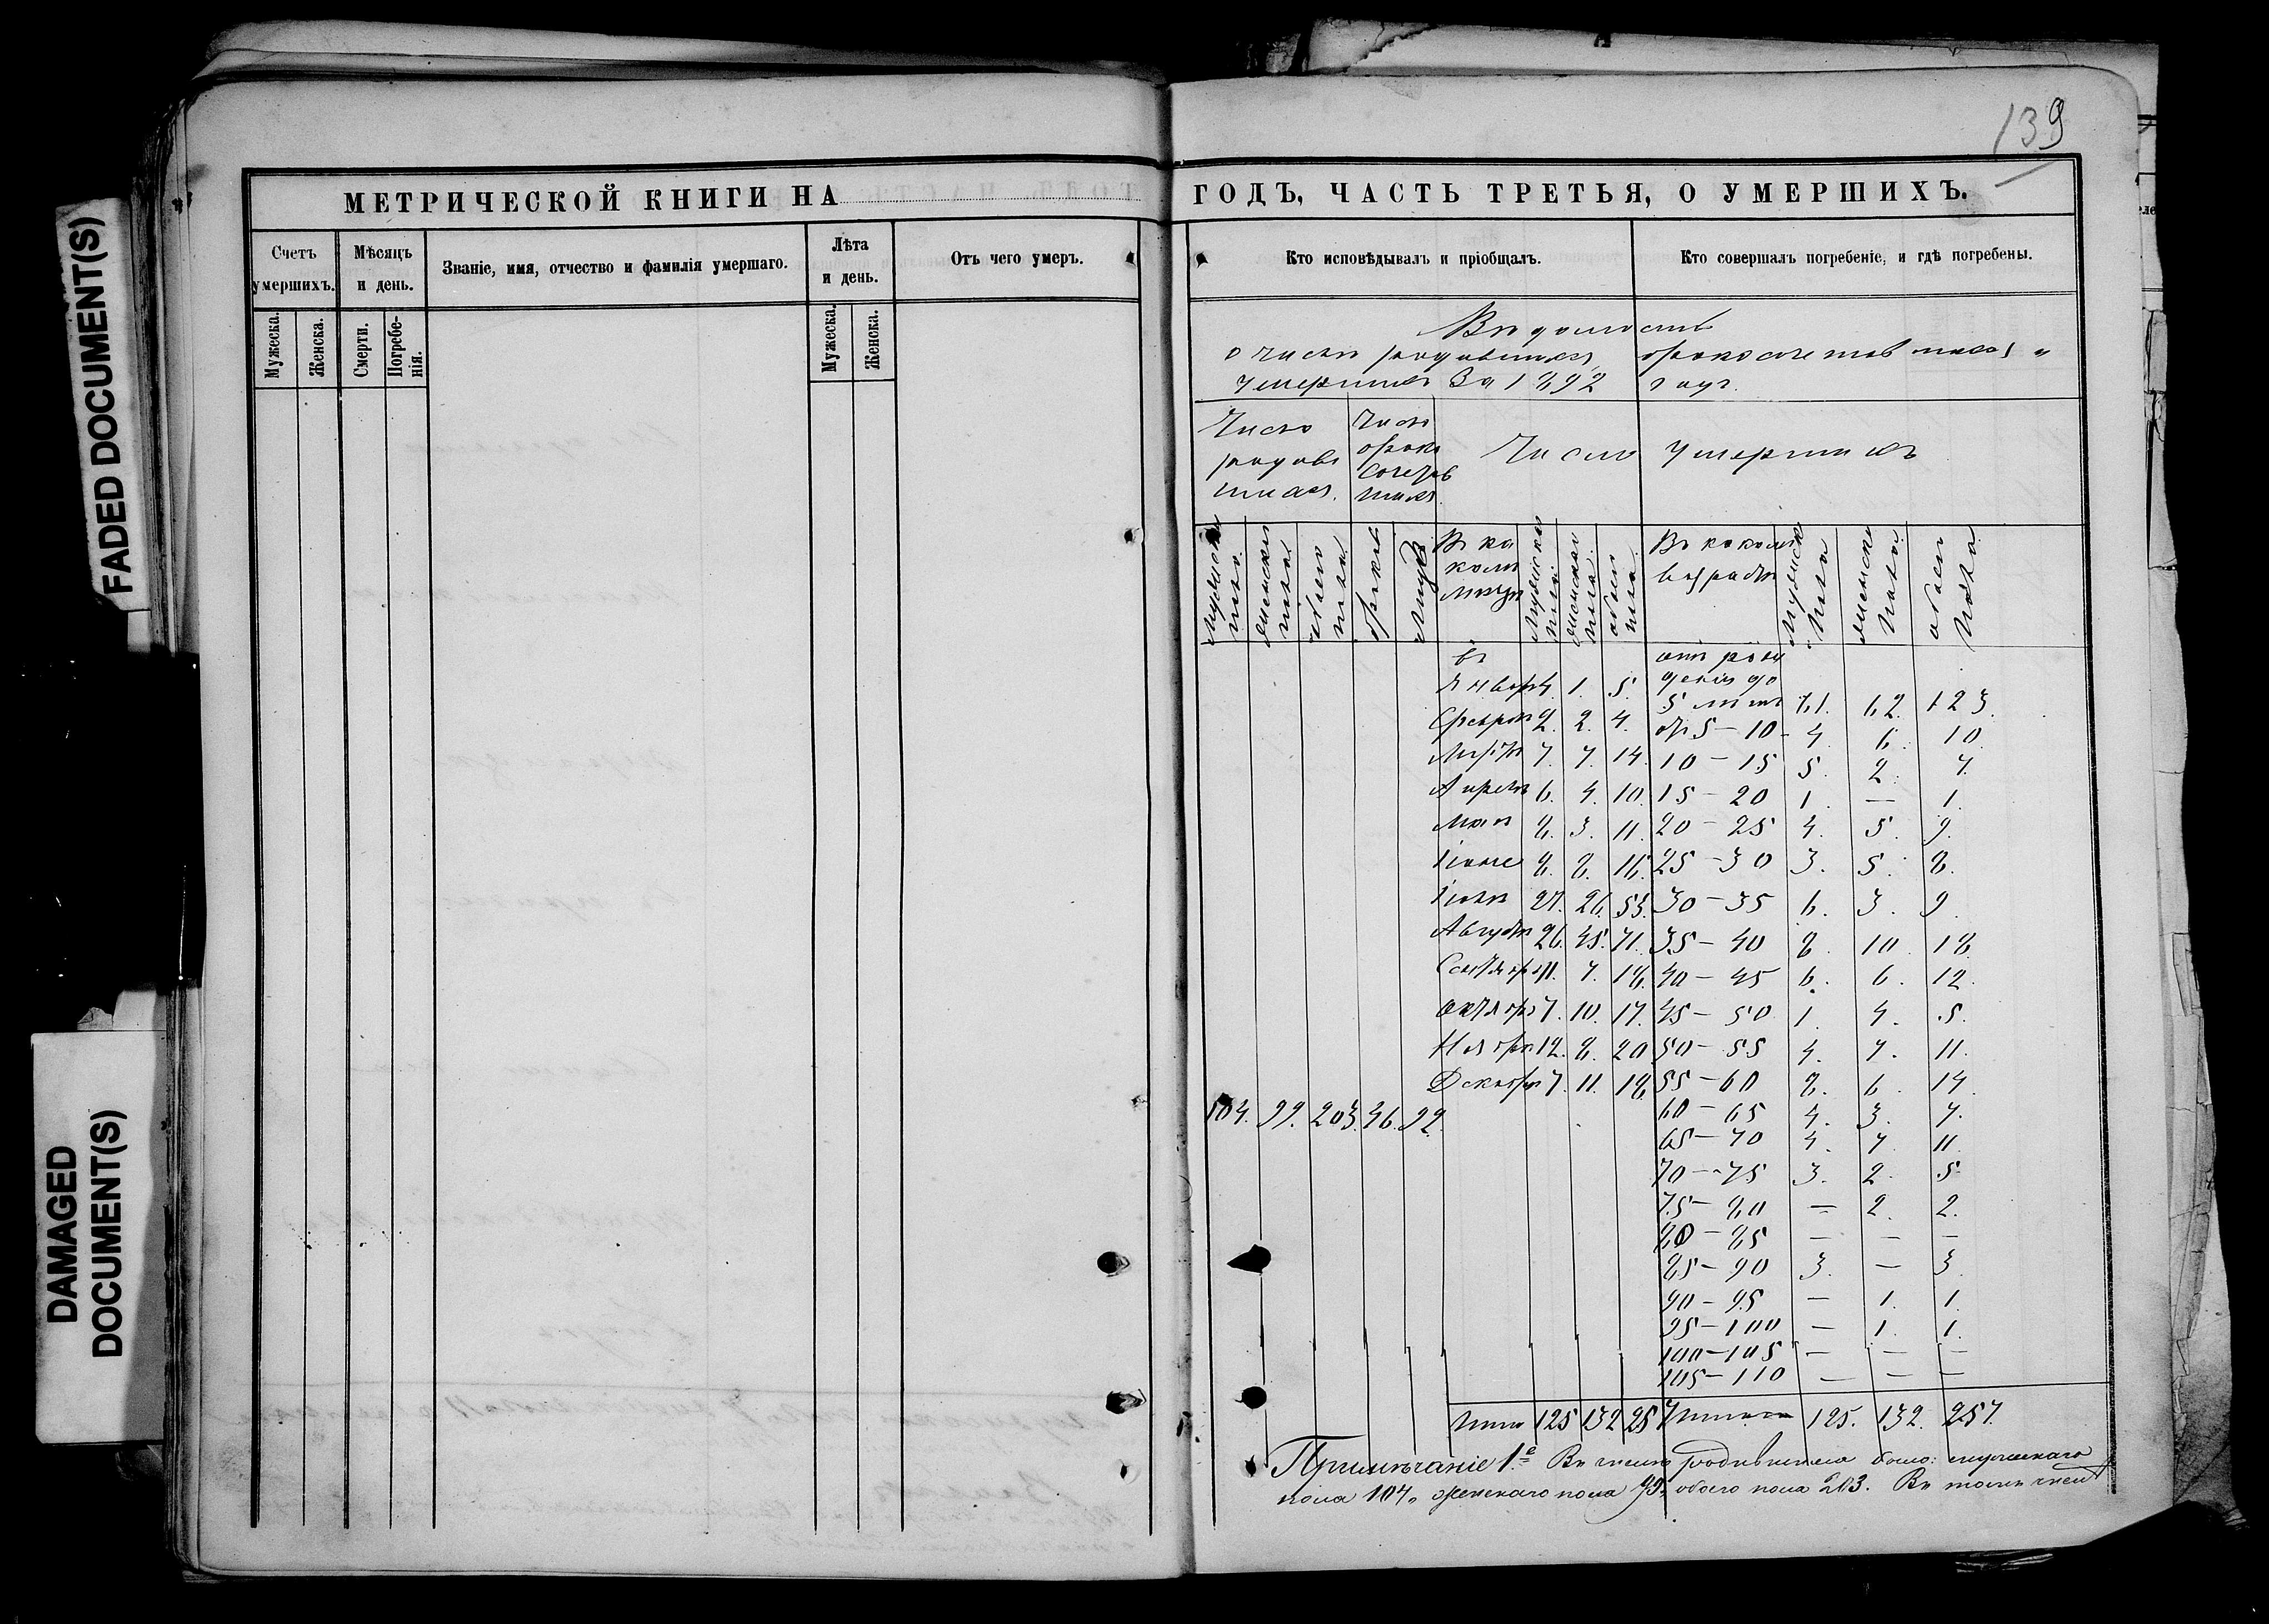 FADED DOCUMENT(S)
DAMAGED
DOCUMENT(S)
139
МЕТРИЧЕСКОЙ КНИГИ НА ГОДЪ, ЧАСТЬ ТРЕТЬЯ, О УМЕРШИХЪ.
Счетъ умершихъ.
Мѣсяцъ и день.
Званіе, имя, отчество и фамилія умершаго.
Лѣта и день.
Отъ чего умеръ.
Кто исповѣдывалъ и пріобщалъ.
Кто совершалъ погребеніе, и гдѣ погребены.
Мужеска.
Женска.
Смерти.
Погребе-
нія.
Мужеска.
Женска.
Вѣдомость
о числѣ родившихся, бракосочетавшихся и
умершихъ за 1892 годъ.
Число
родив
шихся.
Число
брако
сочетав
шихся.
Число умершихъ
мужеска пола
женска пола
обоего пола
браковъ
лицъ
Въ ка
комъ
мѣсяцѣ
мужеска пола
женска пола
обоего пола
Въ какомъ
возрастѣ
мужеска пола
женска пола
обоего пола
въ
Январѣ 4. 1. 5.
Февралѣ 2. 2. 4.
Мартѣ 7. 7. 14.
Апрѣлѣ 6. 4. 10.
Маѣ 8. 3. 11.
Іюне 8. 8. 16.
Іюлѣ 27. 26. 53.
Августѣ 26. 45. 71.
Сентябрѣ 11. 7. 18.
Октябрѣ 7. 10. 17.
Ноябрѣ 12. 8. 20
Декабрѣ 7. 11. 18
104. 99. 203. 46. 92.
отъ рож
денія до
5 лѣтъ 61. 62. 123.
отъ 5 - 10 - 4. 6. 10.
10 - 15 5. 2. 7.
15 - 20 1. — 1.
20 - 25 4. 5. 9.
25 - 30 3. 5. 8.
30 - 35 6. 3. 9.
35 - 40 8. 10. 18.
40 - 45 6. 6. 12.
45 - 50 1. 4. 5.
50 - 55 4. 7. 11.
55 - 60 8. 6. 14
60 - 65 4. 3. 7.
65 - 70 4. 7. 11
70 - 75 3. 2. 5
75 - 80 — 2. 2.
80 - 85 — — —
85 - 90 3. — 3.
90 - 95 — 1. 1.
95 - 100 — 1. 1.
100 - 105 — — —
105 - 110 — — —
Итого 125 132 257
Итого 125. 132. 257.
Примѣчаніе 1е Въ числѣ родившихся было: мужескаго
пола 104, женскаго пола 99, обоего пола 203. Въ томъ числѣ